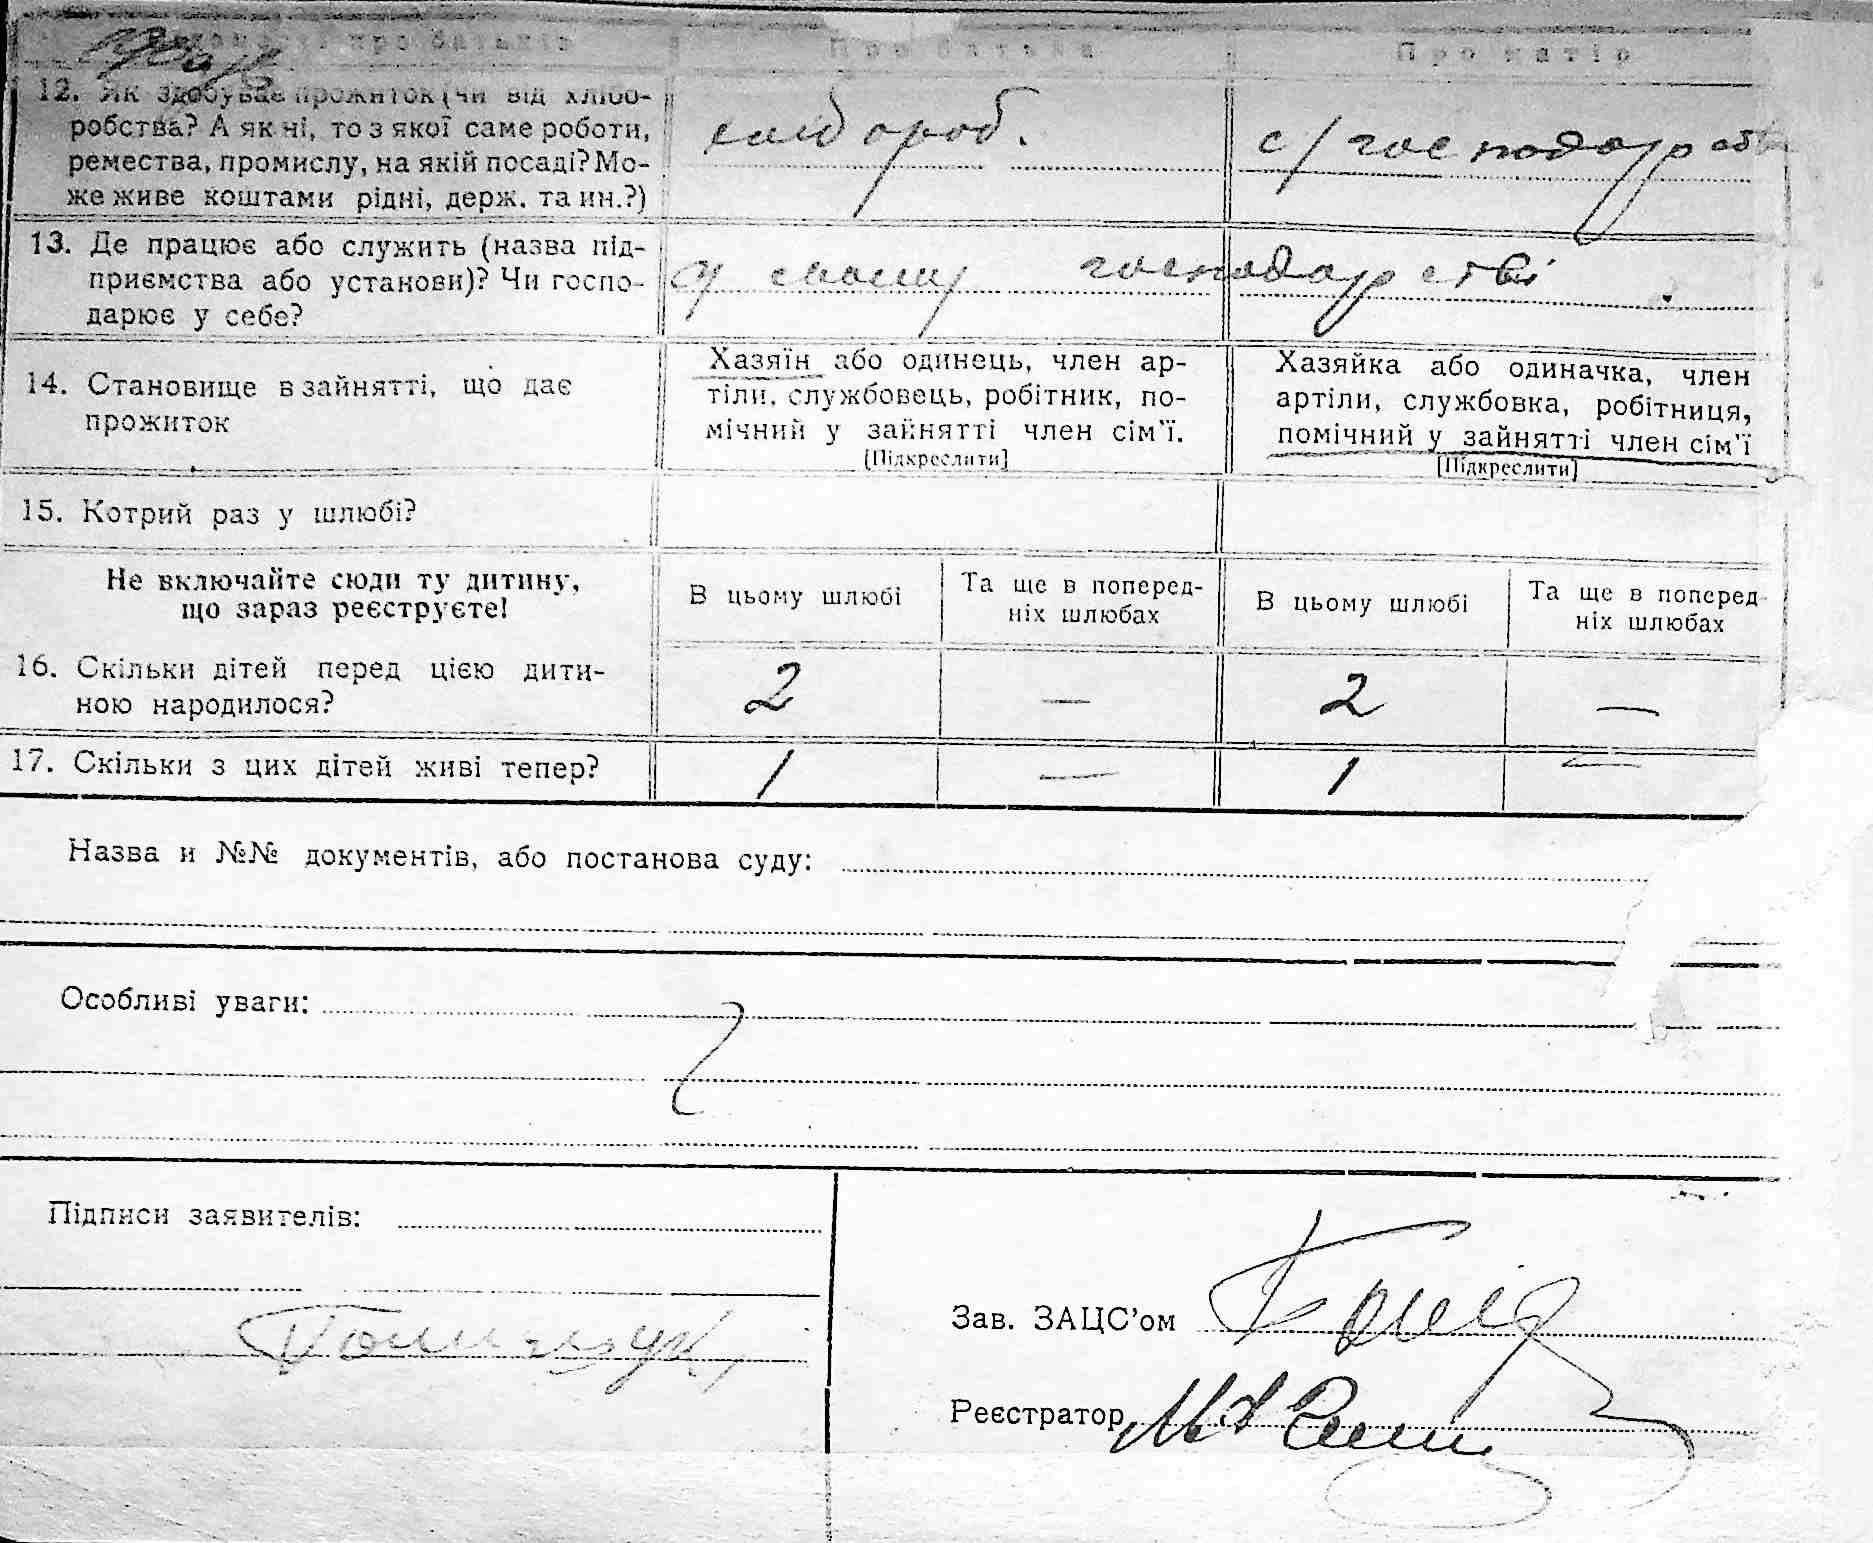 Відомості про батьків Про батька Про матір
12. Як здобуває прожиток (чи від хлібо-
робства? А як ні, то з якої саме роботи,
ремества, промислу, на якій посаді? Мо-
же живе коштами рідні, держ. та ин.?)
хлібороб.
с/господарств
13. Де працює або служить (назва під-
приємства або установи)? Чи госпо-
дарює у себе?
у своему господарстві.
14. Становище в зайнятті, що дає
прожиток
Хазяїн або одинець, член ар-
тіли, службовець, робітник, по-
мічний у зайнятті член сім'ї.
[Підкреслити]
Хазяйка або одиначка, член
артіли, службовка, робітниця,
помічний у зайнятті член сім'ї
[Підкреслити]
15. Котрий раз у шлюбі?
Не включайте сюди ту дитину,
що зараз реєструєте!
В цьому шлюбі
Та ще в поперед-
ніх шлюбах
В цьому шлюбі
Та ще в поперед-
ніх шлюбах
16. Скільки дітей перед цією дити-
ною народилося?
2 — 2 —
17. Скільки з цих дітей живі тепер? 1 — 1 —
Назва и №№ документів, або постанова суду:
Особливі уваги:
Підписи заявителів:
Зав. ЗАЦС'ом
Реєстратор